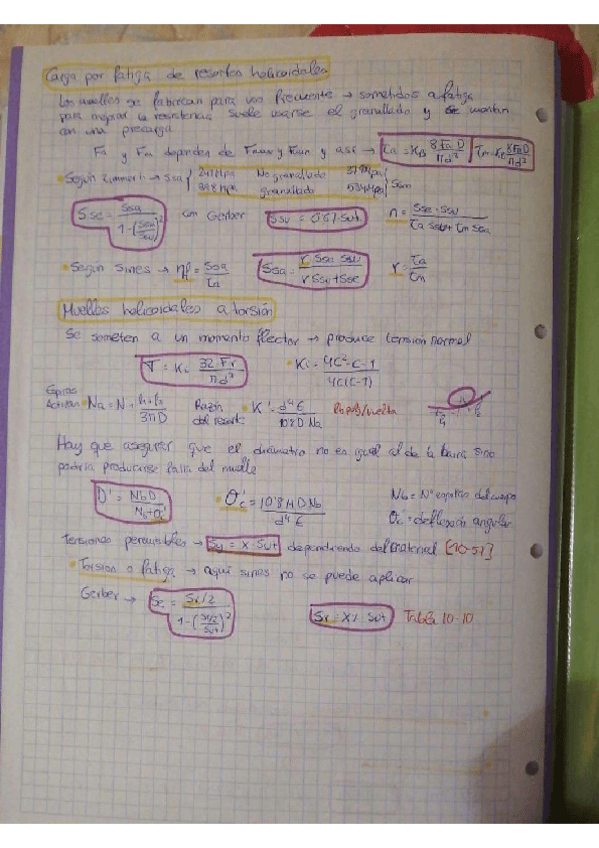 Carga por fatiga de resortes helicoidales
Los muelles se fabrican para uso frecuente → sometidos a fatiga
para mejorar la resistencia suele usarse el granallado y se montan
con una precarga
Fa y Fm dependen de Fmax y Fmin y así → τa = KB 8FaD/πd³ τm = KB 8FmD/πd³
• Según Zimmerli → Ssa { 241 Mpa No granallado 379 Mpa
398 Mpa granallado 534 Mpa } Ssm
Sse = Ssa / 1-(Ssm/Ssu)² con Gerber Ssu = 0'67·Sut n = Sse·Ssu / τa Ssu + τm Sse
• Según Sines → nf = Ssa/τa Ssa = r Sse Ssu / r Ssu + Sse r = τa/τm
Muelles helicoidales a torsión
Se someten a un momento flector → produce tensión normal
T = Ki 32·F·r / πd³ • Ki = 4C²-C-1 / 4C(C-1)
Espiras
Activas • Na = N + l1+l2 / 3πD Razón del resorte • K' = d⁴E / 10'8 D Na
Hay que asegurar que el diámetro no es igual al de la barra sino
podría producirse falla del muelle
D' = Nb D / Nb+θc' • θc' = 10'8 M D Nb / d⁴ E Nb = Nº espiras del cuerpo
θc' = deflexión angular
Tensiones permisibles → Sy = x·Sut dependiendo del material [10-57]
• Torsión a fatiga → aquí sines no se puede aplicar
Gerber → Se = Sr/2 / 1-(Sr/2 / Sut)² Sr = X%·Sut Tabla 10-10